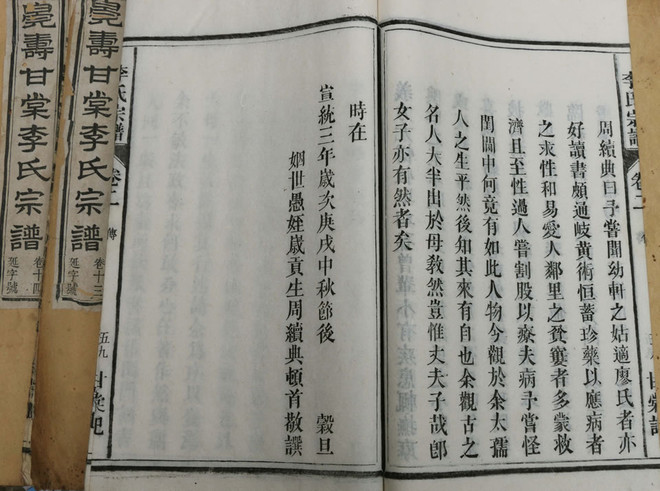 李氏宗譜
卷二
傳
周續典曰予嘗聞幼軒之姑適廖氏者亦
好讀書頗通岐黃術恒蓄珍藥以應病者
之求性和易愛人鄰里之貧窶者多蒙救
濟且至性過人嘗割股以療夫病予嘗怪
閨闥中何竟有如此人物今觀於余太孺
人之生平然後知其來有自也余觀古之
名人大半出於母教然豈惟丈夫子哉卽
女子亦有然者矣
時在
宣統三年歲次庚戌中秋節後 穀旦
姻世愚姪歲貢生周續典頓首敬譔
李氏宗譜
卷二
傳
五九
甘棠
壽甘棠李氏宗譜
卷十三
延字號
壽甘棠李氏宗譜
卷十四
延字號